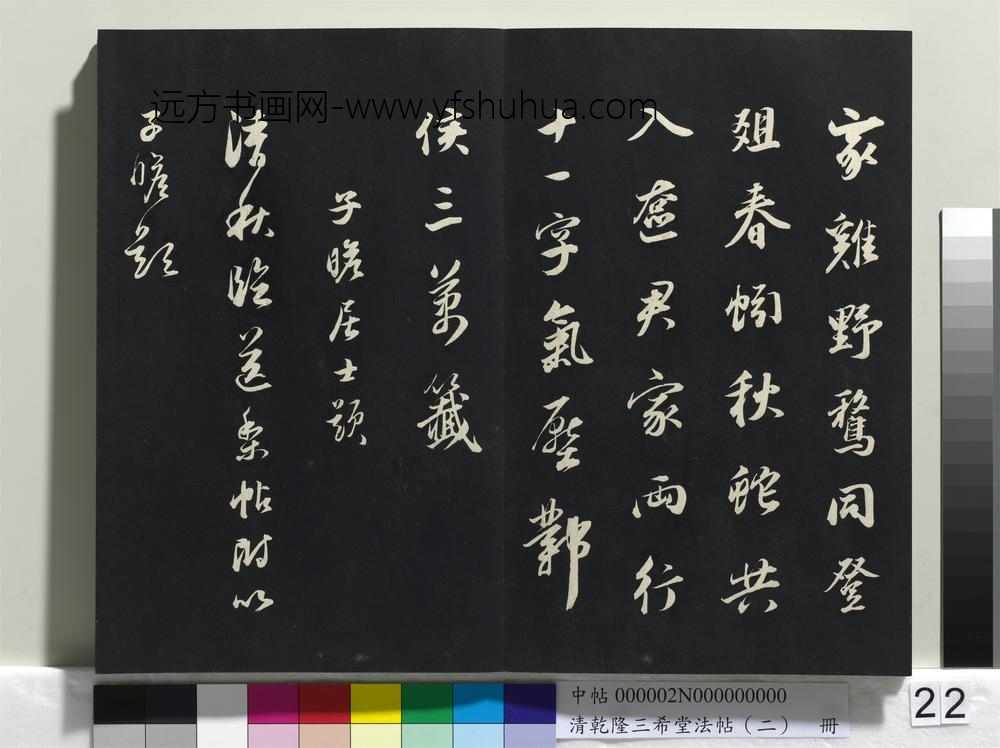 远方书画网-www.yfshuhua.com
家雞野鶩同登
爼春蚓秋蛇共
入奩君家兩行
十一字氣壓鄴
侯三萬籤
子瞻居士題
清秋臨送梨帖附以
子瞻題
中帖 000002N000000000
清乾隆三希堂法帖（二） 冊
22